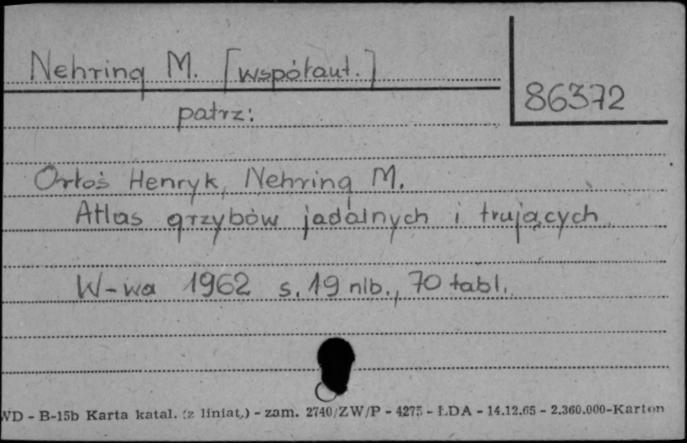 Nehring M. [współaut.]
86372
patrz:
Orłoś Henryk, Nehring M.
Atlas grzybów jadalnych i trujących
W-wa 1962 s. 19 nlb., 70 tabl.
WD - B-15b Karta katal. (z liniat.) - zam. 2740/ZW/P - 4275 - ŁDA - 14.12.65 - 2.360.000-Karton